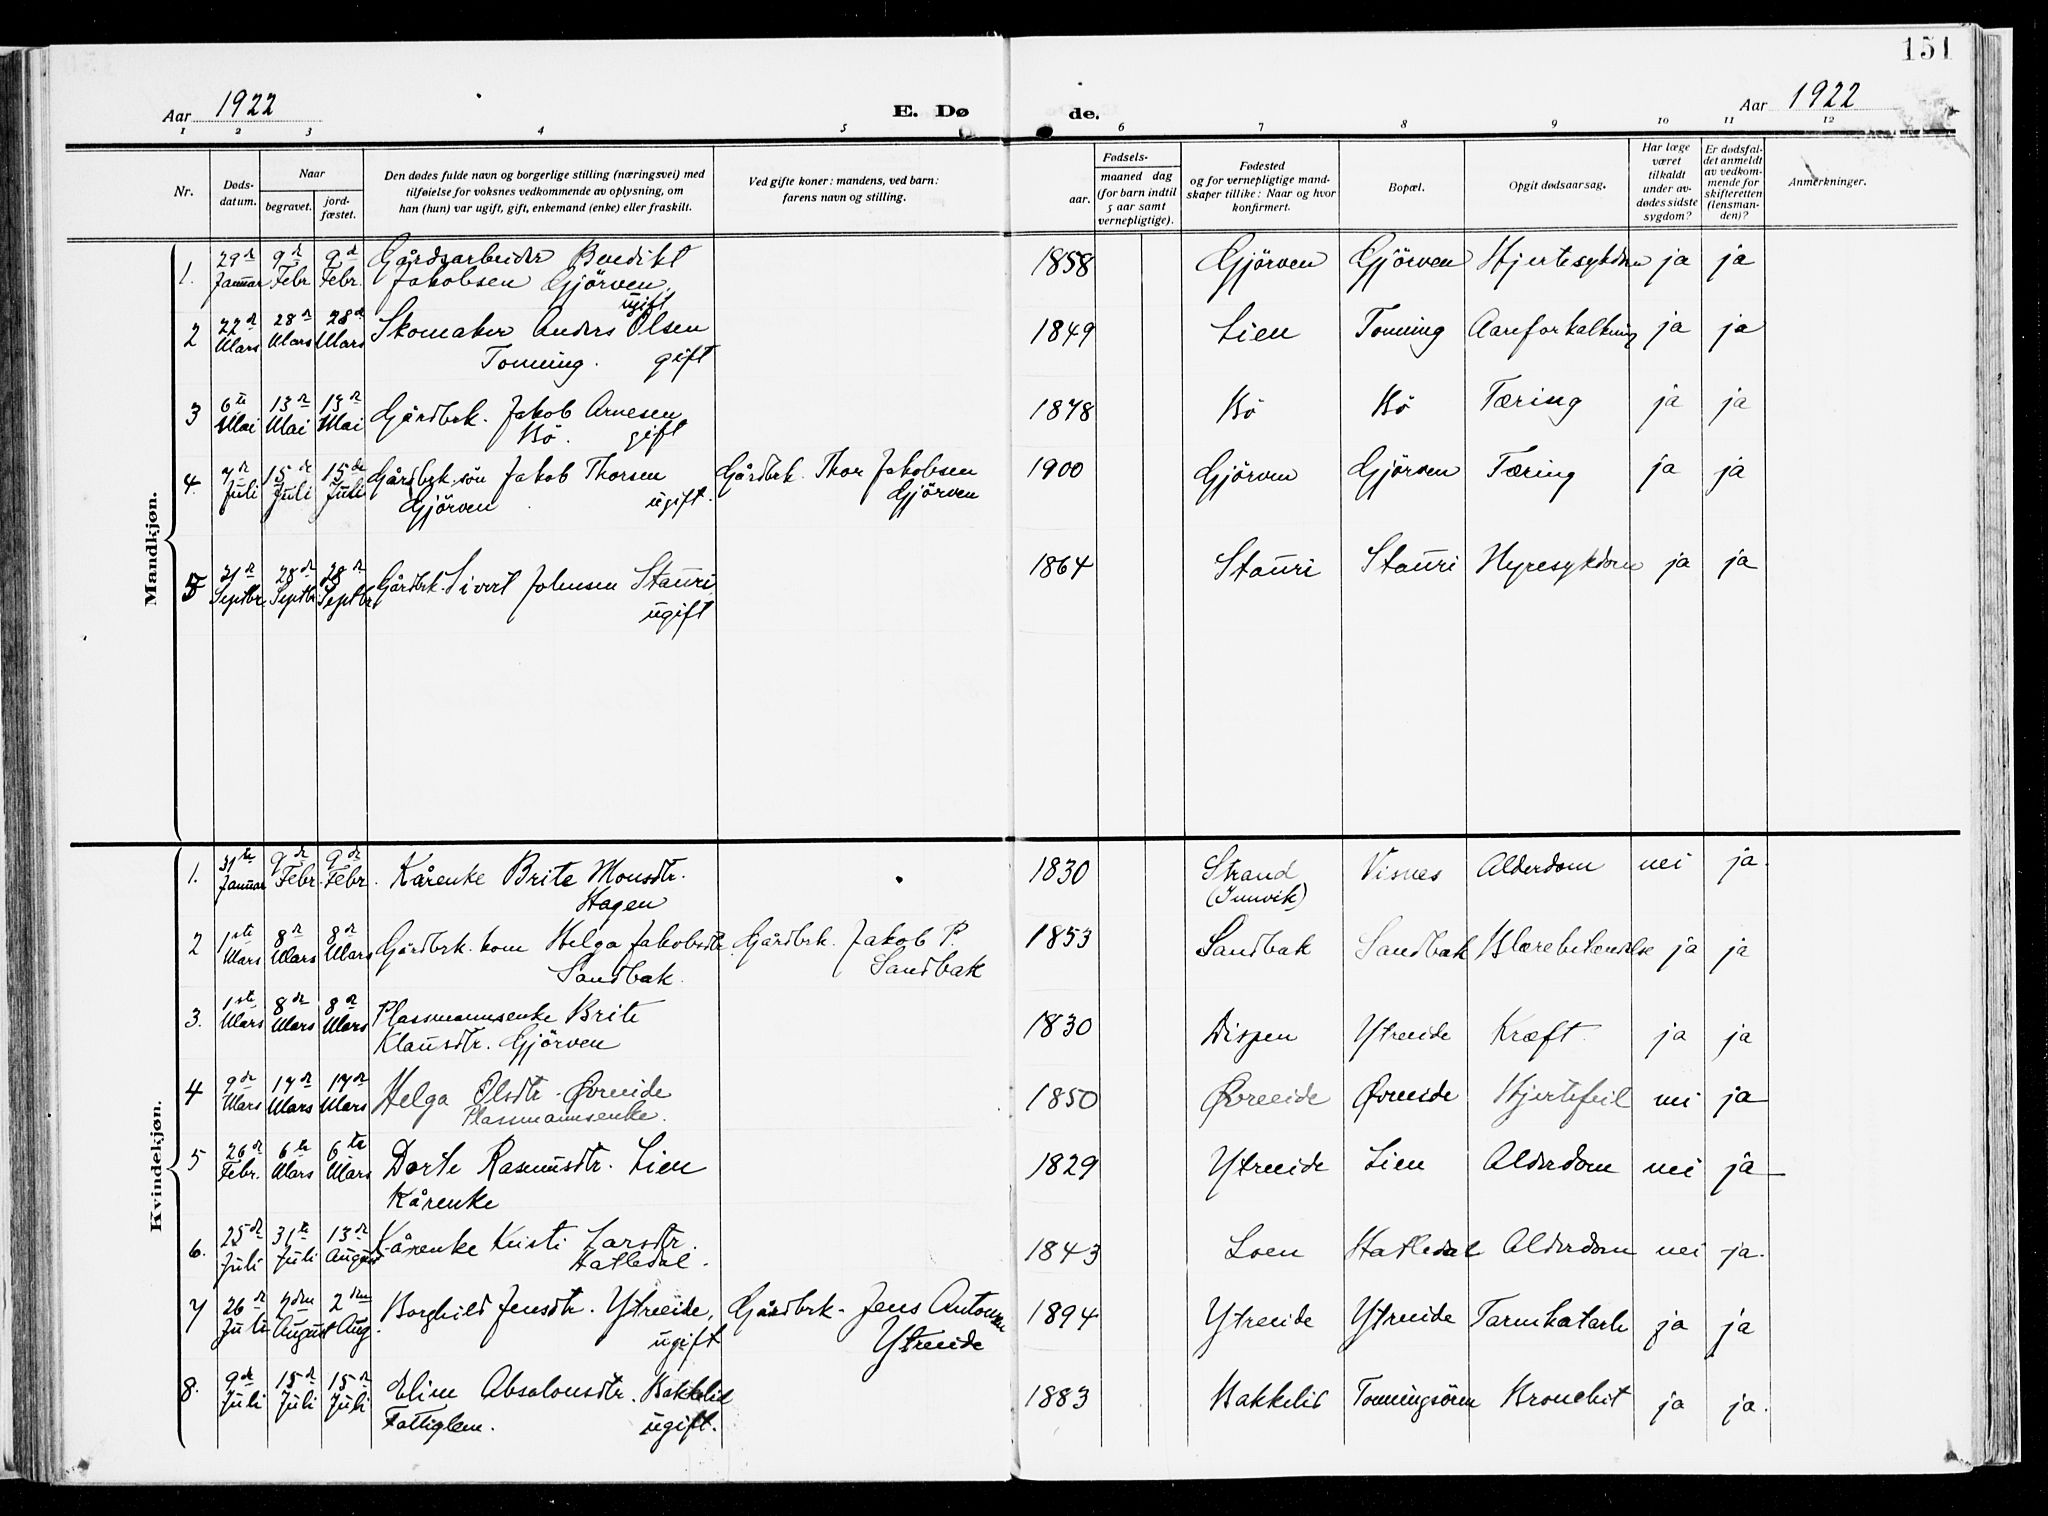 151
Aar 1922 E. Dø de. Aar 1922
1 2 3 4 5 6 7 8 9 10 11 12
Nr. Døds-datum. Naar begravet. jord-fæstet. Den dødes fulde navn og borgerlige stilling (næringsvei) med tilføielse for voksnes vedkommende av oplysning, om han (hun) var ugift, gift, enkemand (enke) eller fraskilt. Ved gifte koner: mandens, ved barn: farens navn og stilling. Fødsels- aar. maaned dag (for barn indtil 5 aar samt vernepligtige). Fødested og for vernepligtige mand-skaper tillike: Naar og hvor konfirmert. Bopæl. Opgit dødsaarsag. Har læge været tilkaldt under av-dødes sidste sygdom? Er dødsfal-det anmeldt av vedkom-mende for skifteretten (lensman-den)? Anmerkninger.
Mandkjøn.
1. 29de Januar 9de Febr 9de Febr. Gårdsarbeider Benedikt Jakobsen Gjörven. ugift 1858 Gjörven Gjörven Hjertesykdom ja ja
2 22de Mars 28de Mars 28de Mars Skomaker Anders Olsen Tonning. gift 1849 Lien Tonning Aareforkalkning ja ja
3 6te Mai 13de Mai 13de Mai Gårdbrk. Jakob Arnesen Bö. gift 1878 Bö Bö Tæring ja ja
4. 7de Juli 15de Juli 15de Juli Gårdbrk. sön Jakob Thorsen Gjörven ugift. Gårdbrk. Thor Jakobsen Gjörven 1900 Gjörven Gjörven Tæring ja ja
5 21de Septbr 28de Septbr 28de Septbr Gårdbrk. Sivert Johnsen Stauri ugift 1864 Stauri Stauri Nyresykdom ja ja
Kvindekjøn.
1. 31te Januar 9de Febr. 9de Febr. Kårenke Brite Monsdtr. Hagen 1830 Strand (Innvik) Visnes Alderdom nei ja.
2 1ste Mars 8de Mars 8de Mars Gårdbrk. kone Helga Jakobsdtr. Sandbak. Gårdbrk. Jakob P. Sandbak 1853 Sandbak Sandbak Blærebetændelse ja ja
3. 1ste Mars 8de Mars 8de Mars Plassmannsenke Brite Klausdtr. Gjörven 1830 Dispen Ytreeide Kræft. ja ja
4 9de Mars 17de Mars 17de Mars Helga Olsdtr. Øvreeide Plassmannsenke. 1850 Øvreeide Øvreeide Hjertefeil nei ja
5 26de Febr. 6te Mars 6te Mars Dorte Rasmusdtr. Lien Kårenke 1829 Ytreeide Lien Alderdom nei ja
6. 25de Juli 31te Juli 13de August Kårenke Kristi Larsdtr. Hatledal. 1843 Loen Hatledal Alderdom nei ja.
7 26de Juli 2den August 2den Aug. Borghild Jensdtr. Ytreeide, ugift Gårdbrk. Jens Antonsen Ytreeide 1894 Ytreeide Ytreeide Tarmkatarh ja ja
8. 9de Juli 15de Juli 15de Juli Eline Absalonsdtr. Bakkelid Fattiglem. ugift. 1883 Bakkelid Tonningsören Bronchit ja ja.